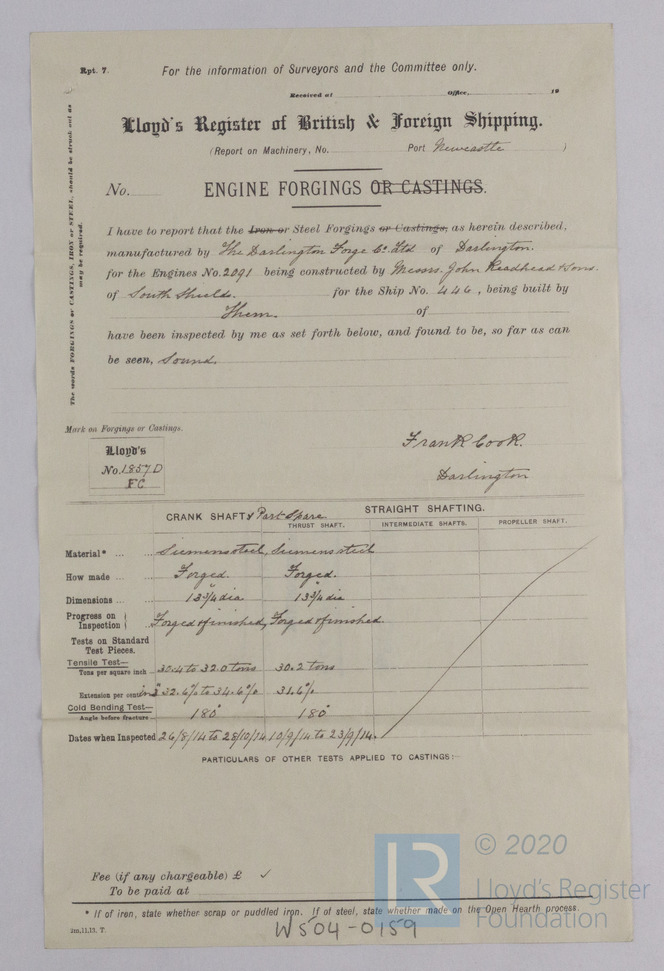 Rpt. 7.
For the information of Surveyors and the Committee only.
Received at Office, 19
Lloyd's Register of British & Foreign Shipping.
(Report on Machinery, No. Port Newcastle )
No. ENGINE FORGINGS OR CASTINGS.
I have to report that the Iron or Steel Forgings or Castings, as herein described,
manufactured by The Darlington Forge Co. Ltd of Darlington.
for the Engines No. 2091 being constructed by Messrs. John Readhead & Sons.
of South Shields. for the Ship No. 446, being built by
Them. of
have been inspected by me as set forth below, and found to be, so far as can
be seen, Sound.
The words FORGINGS or CASTINGS, IRON or STEEL, should be struck out as
may be required.
Mark on Forgings or Castings.
Lloyd's
No. 1857 D
FC
Frank Cook.
Darlington
CRANK SHAFT & Part Spare. STRAIGHT SHAFTING.
THRUST SHAFT. INTERMEDIATE SHAFTS. PROPELLER SHAFT.
Material* ... Siemens steel, Siemens steel
How made ... Forged. Forged.
Dimensions ... 13 3/4" dia 13 3/4" dia
Progress on
Inspection Forged & finished, Forged & finished.
Tests on Standard
Test Pieces.
Tensile Test—
Tons per square inch 30.4 to 32.0 tons 30.2 tons
Extension per cent in 3" 32.6% to 34.6% 31.6%
Cold Bending Test—
Angle before fracture 180° 180°
Dates when Inspected 26/8/14 to 28/10/14 10/9/14 to 23/9/14.
PARTICULARS OF OTHER TESTS APPLIED TO CASTINGS:—
Fee (if any chargeable) £ ✓
To be paid at
* If of iron, state whether scrap or puddled iron. If of steel, state whether made on the Open Hearth process.
2m,11,13. T.
W504-0159
LR
© 2020
Lloyd's Register
Foundation